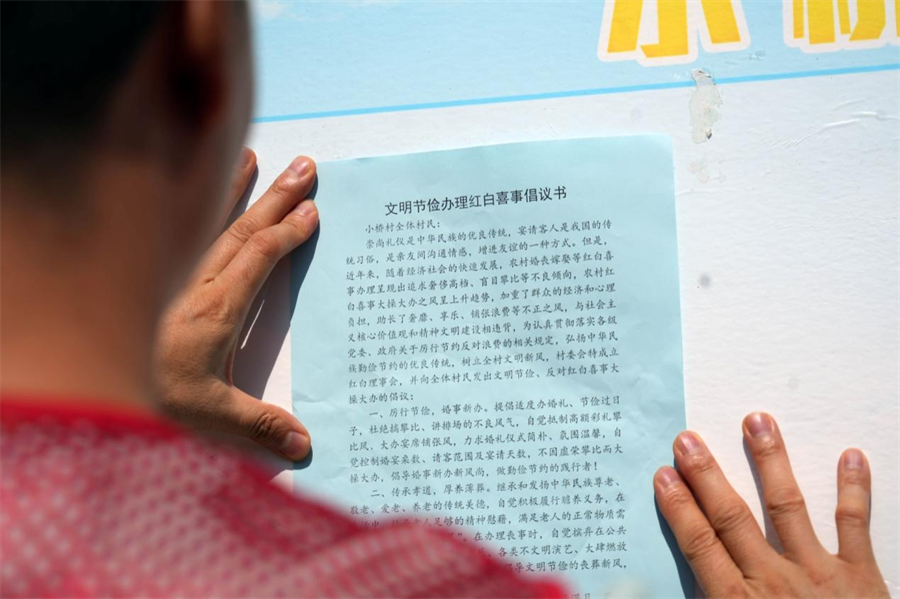 文明节俭办理红白喜事倡议书
小桥村全体村民:
崇尚礼仪是中华民族的优良传统,宴请客人是我国的传
统习俗,是亲友间沟通情感,增进友谊的一种方式。但是,
近年来,随着经济社会的快速发展,农村婚丧嫁娶等红白喜
事办理呈现出追求奢侈高档、盲目攀比等不良倾向,农村红
白喜事大操大办之风呈上升趋势,加重了群众的经济和心理
负担,助长了奢靡、享乐、铺张浪费等不正之风,与社会主
义核心价值观和精神文明建设相违背,为认真贯彻落实各级
党委、政府关于厉行节约反对浪费的相关规定,弘扬中华民
族勤俭节约的优良传统,树立全村文明新风,村委会特成立
红白理事会,并向全体村民发出文明节俭、反对红白喜事大
操大办的倡议:
一、厉行节俭,婚事新办。提倡适度办婚礼、节俭过日
子,杜绝搞攀比、讲排场的不良风气,自觉抵制高额彩礼攀
比风、大办宴席铺张风,力求婚礼仪式简朴、氛围温馨,自
觉控制婚宴桌数、请客范围及宴请天数,不因虚荣攀比而大
操大办,倡导婚事新办新风尚,做勤俭节约的践行者!
二、传承孝道,厚养薄葬。继承和发扬中华民族尊老、
敬老、爱老、养老的传统美德,自觉积极履行赡养义务,在
足够的精神慰藉,满足老人的正常物质需
在办理丧事时,自觉摈弃在公共
各类不文明演艺、大肆燃放
导文明节俭的丧葬新风,